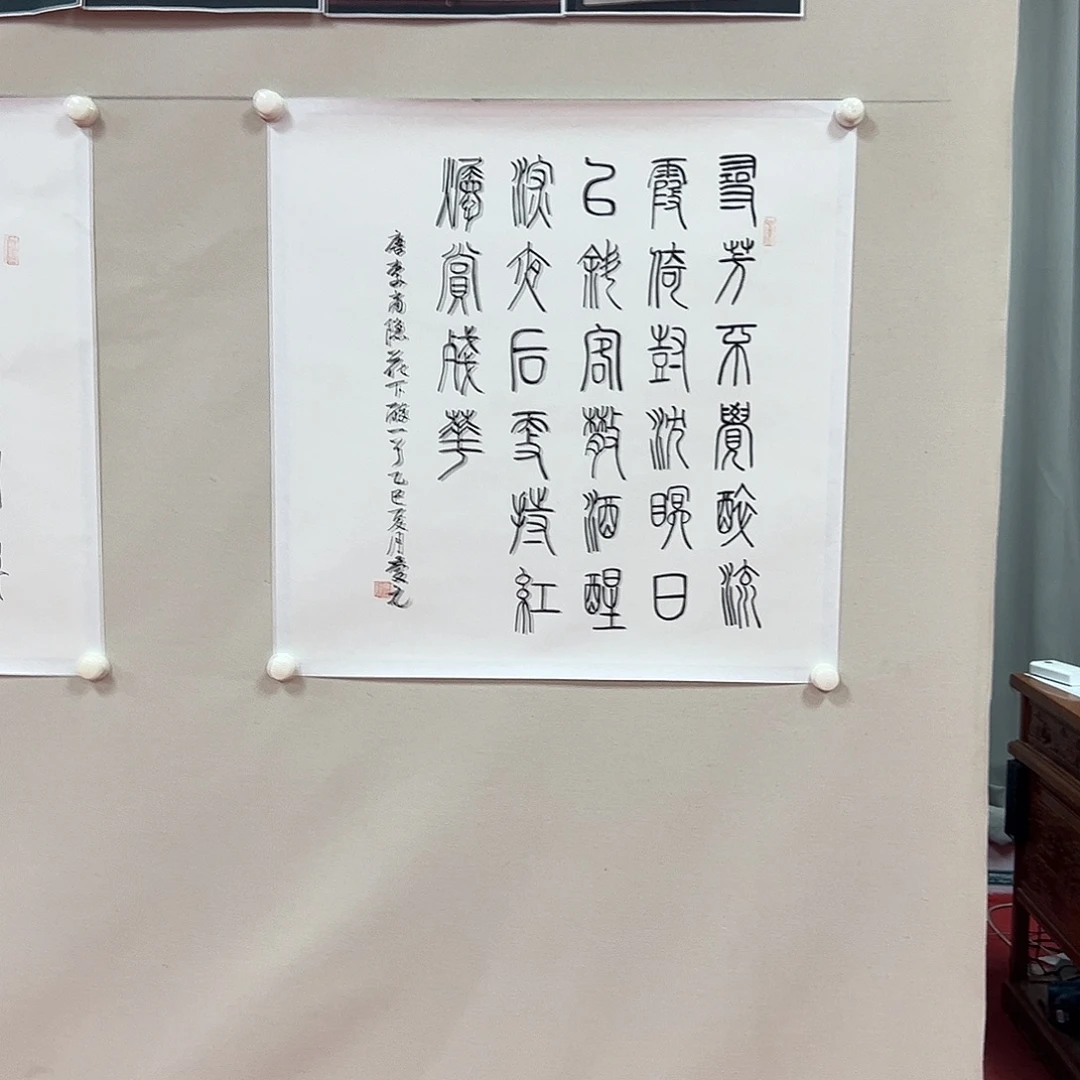 尋芳不覺醉流
霞倚尌沈眠日
已斜客散酒醒
深夜后更持紅
燭賞殘華
唐李商隐花下醉一首乙巳夏月